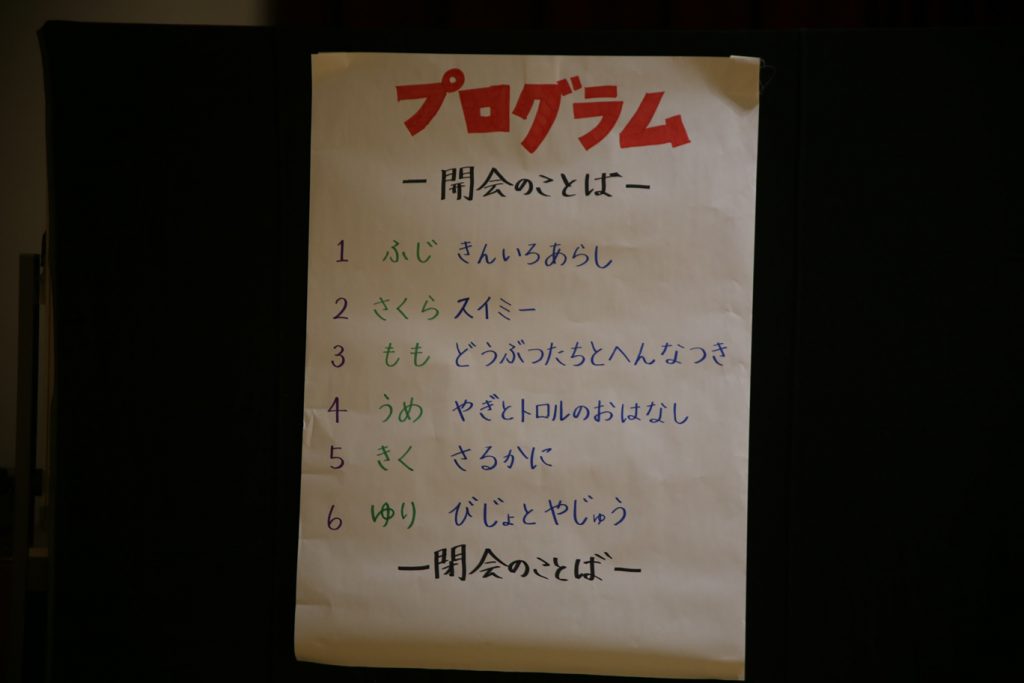 プログラム
ー開会のことばー
1 ふじ きんいろあらし
2 さくら スイミー
3 もも どうぶつたちとへんなつき
4 うめ やぎとトロルのおはなし
5 きく さるかに
6 ゆり びじょとやじゅう
ー閉会のことばー